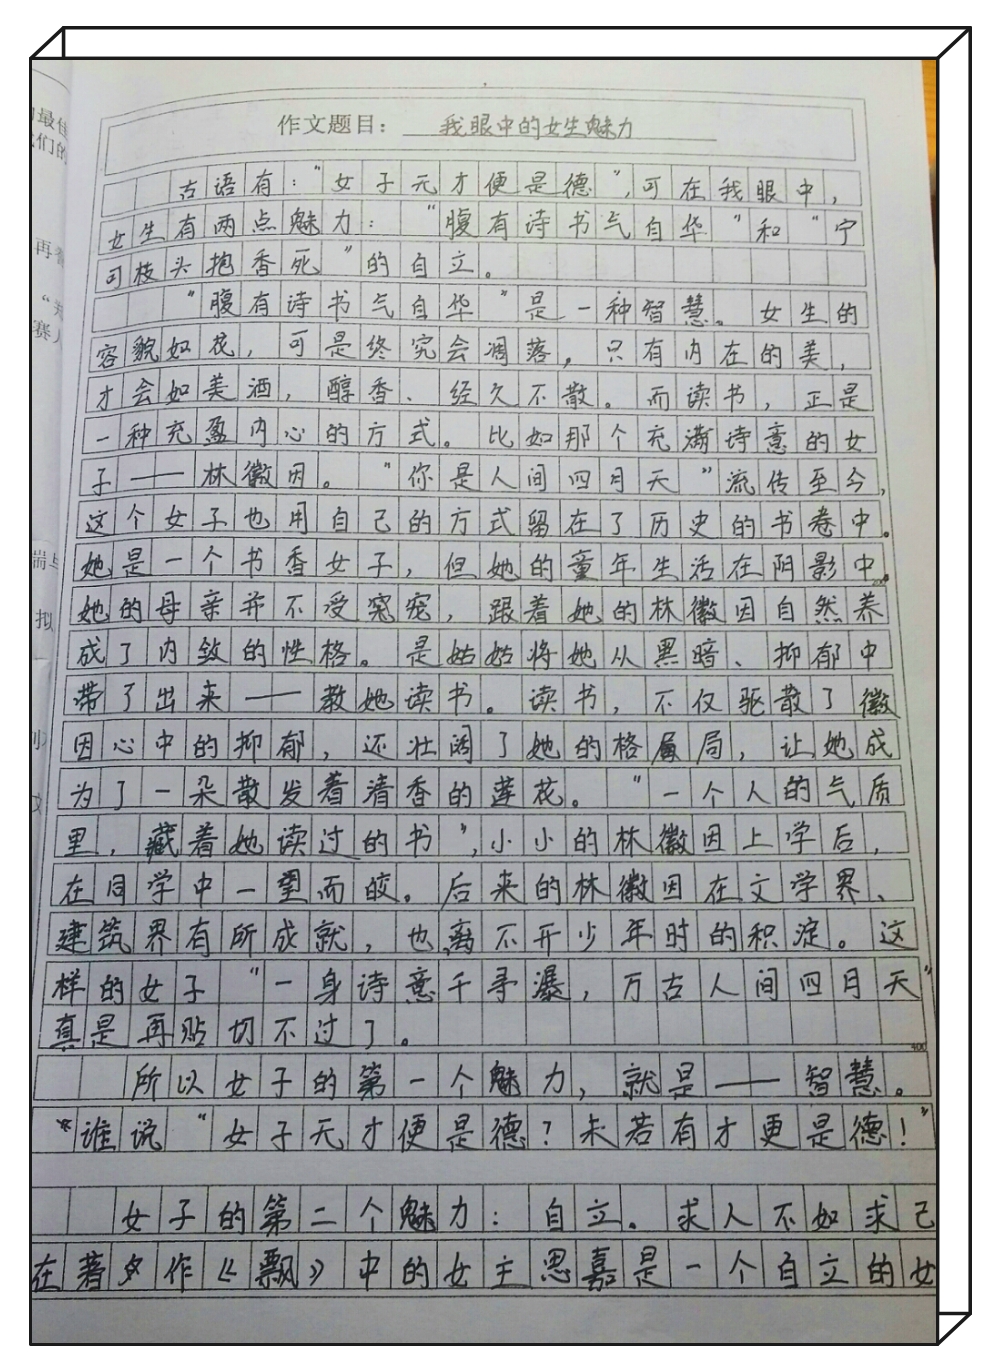 作文题目：我眼中的女生魅力
古语有："女子无才便是德"，可在我眼中，
女生有两点魅力："腹有诗书气自华"和"宁
可枝头抱香死"的自立。
"腹有诗书气自华"是一种智慧。女生的
容貌如花，可是终究会凋落，只有内在的美，
才会如美酒，醇香、经久不散。而读书，正是
一种充盈内心的方式。比如那个充满诗意的女
子——林徽因。"你是人间四月天"流传至今，
这个女子也用自己的方式留在了历史的书卷中。
她是一个书香女子，但她的童年生活在阴影中。
200
她的母亲并不受宠，跟着她的林徽因自然养
成了内敛的性格。是姑姑将她从黑暗、抑郁中
带了出来——教她读书。读书，不仅驱散了徽
因心中的抑郁，还壮阔了她的格局，让她成
为了一朵散发着清香的莲花。"一个人的气质
里，藏着她读过的书"，小小的林徽因上学后，
在同学中一望而皎。后来的林徽因在文学界、
建筑界有所成就，也离不开少年时的积淀。这
样的女子"一身诗意千寻瀑，万古人间四月天"
真是再贴切不过了。
400
所以女子的第一个魅力，就是——智慧。
"谁说"女子无才便是德？未若有才更是德！"
女子的第二个魅力：自立。求人不如求己
在著名作《飘》中的女主思嘉是一个自立的女
最佳
们的
再
赛
拟